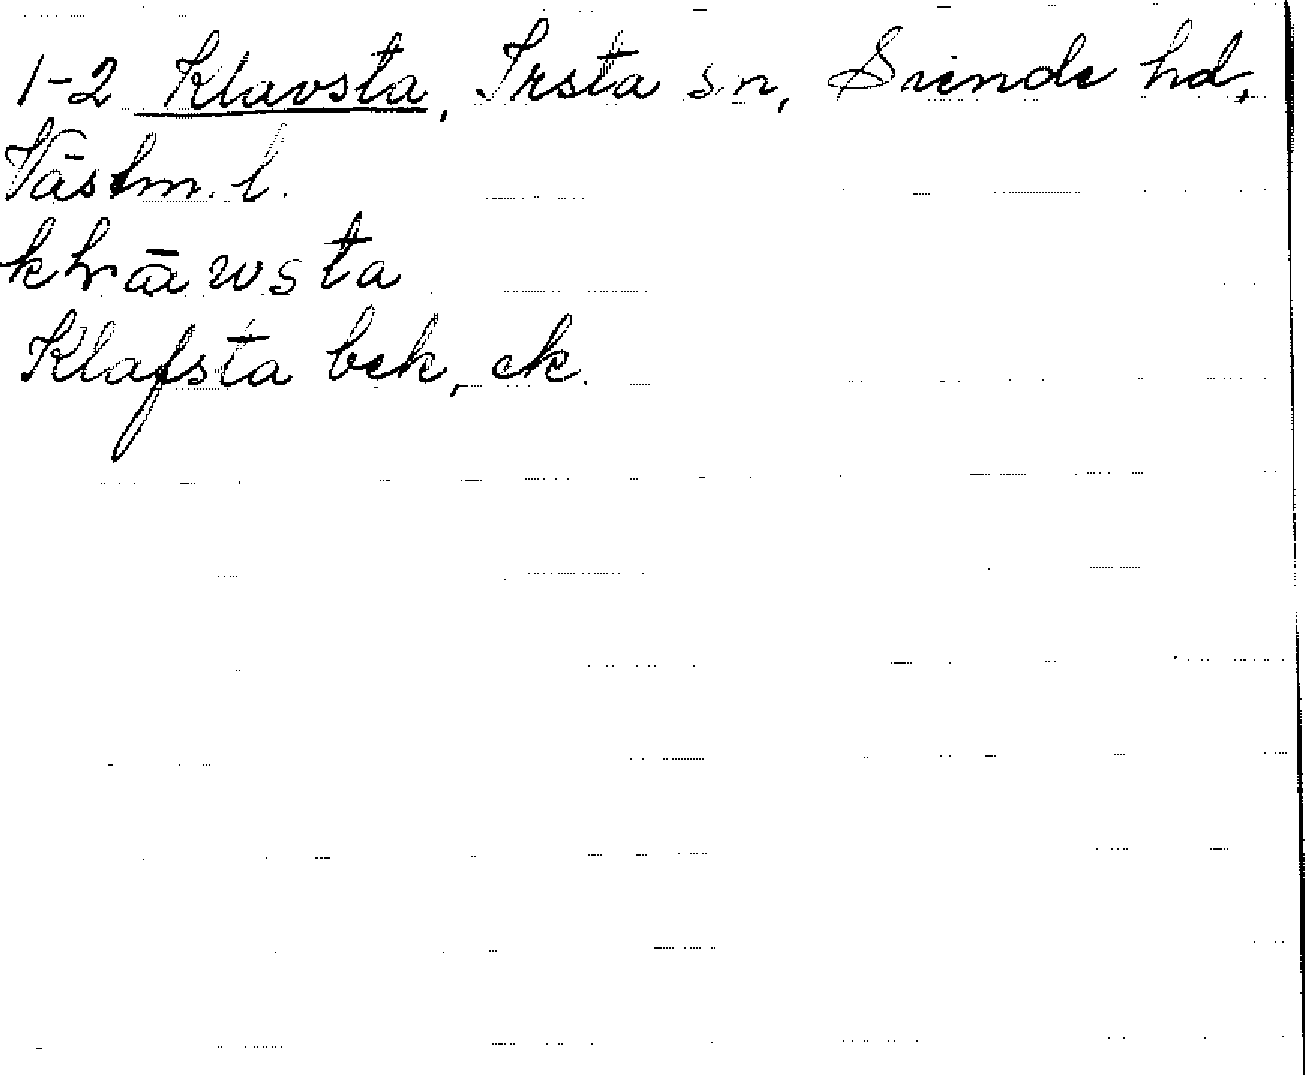 1-2 Klavsta, Irsta sn, Siende hd,
Västm. l.
Klafsta bek, ek.